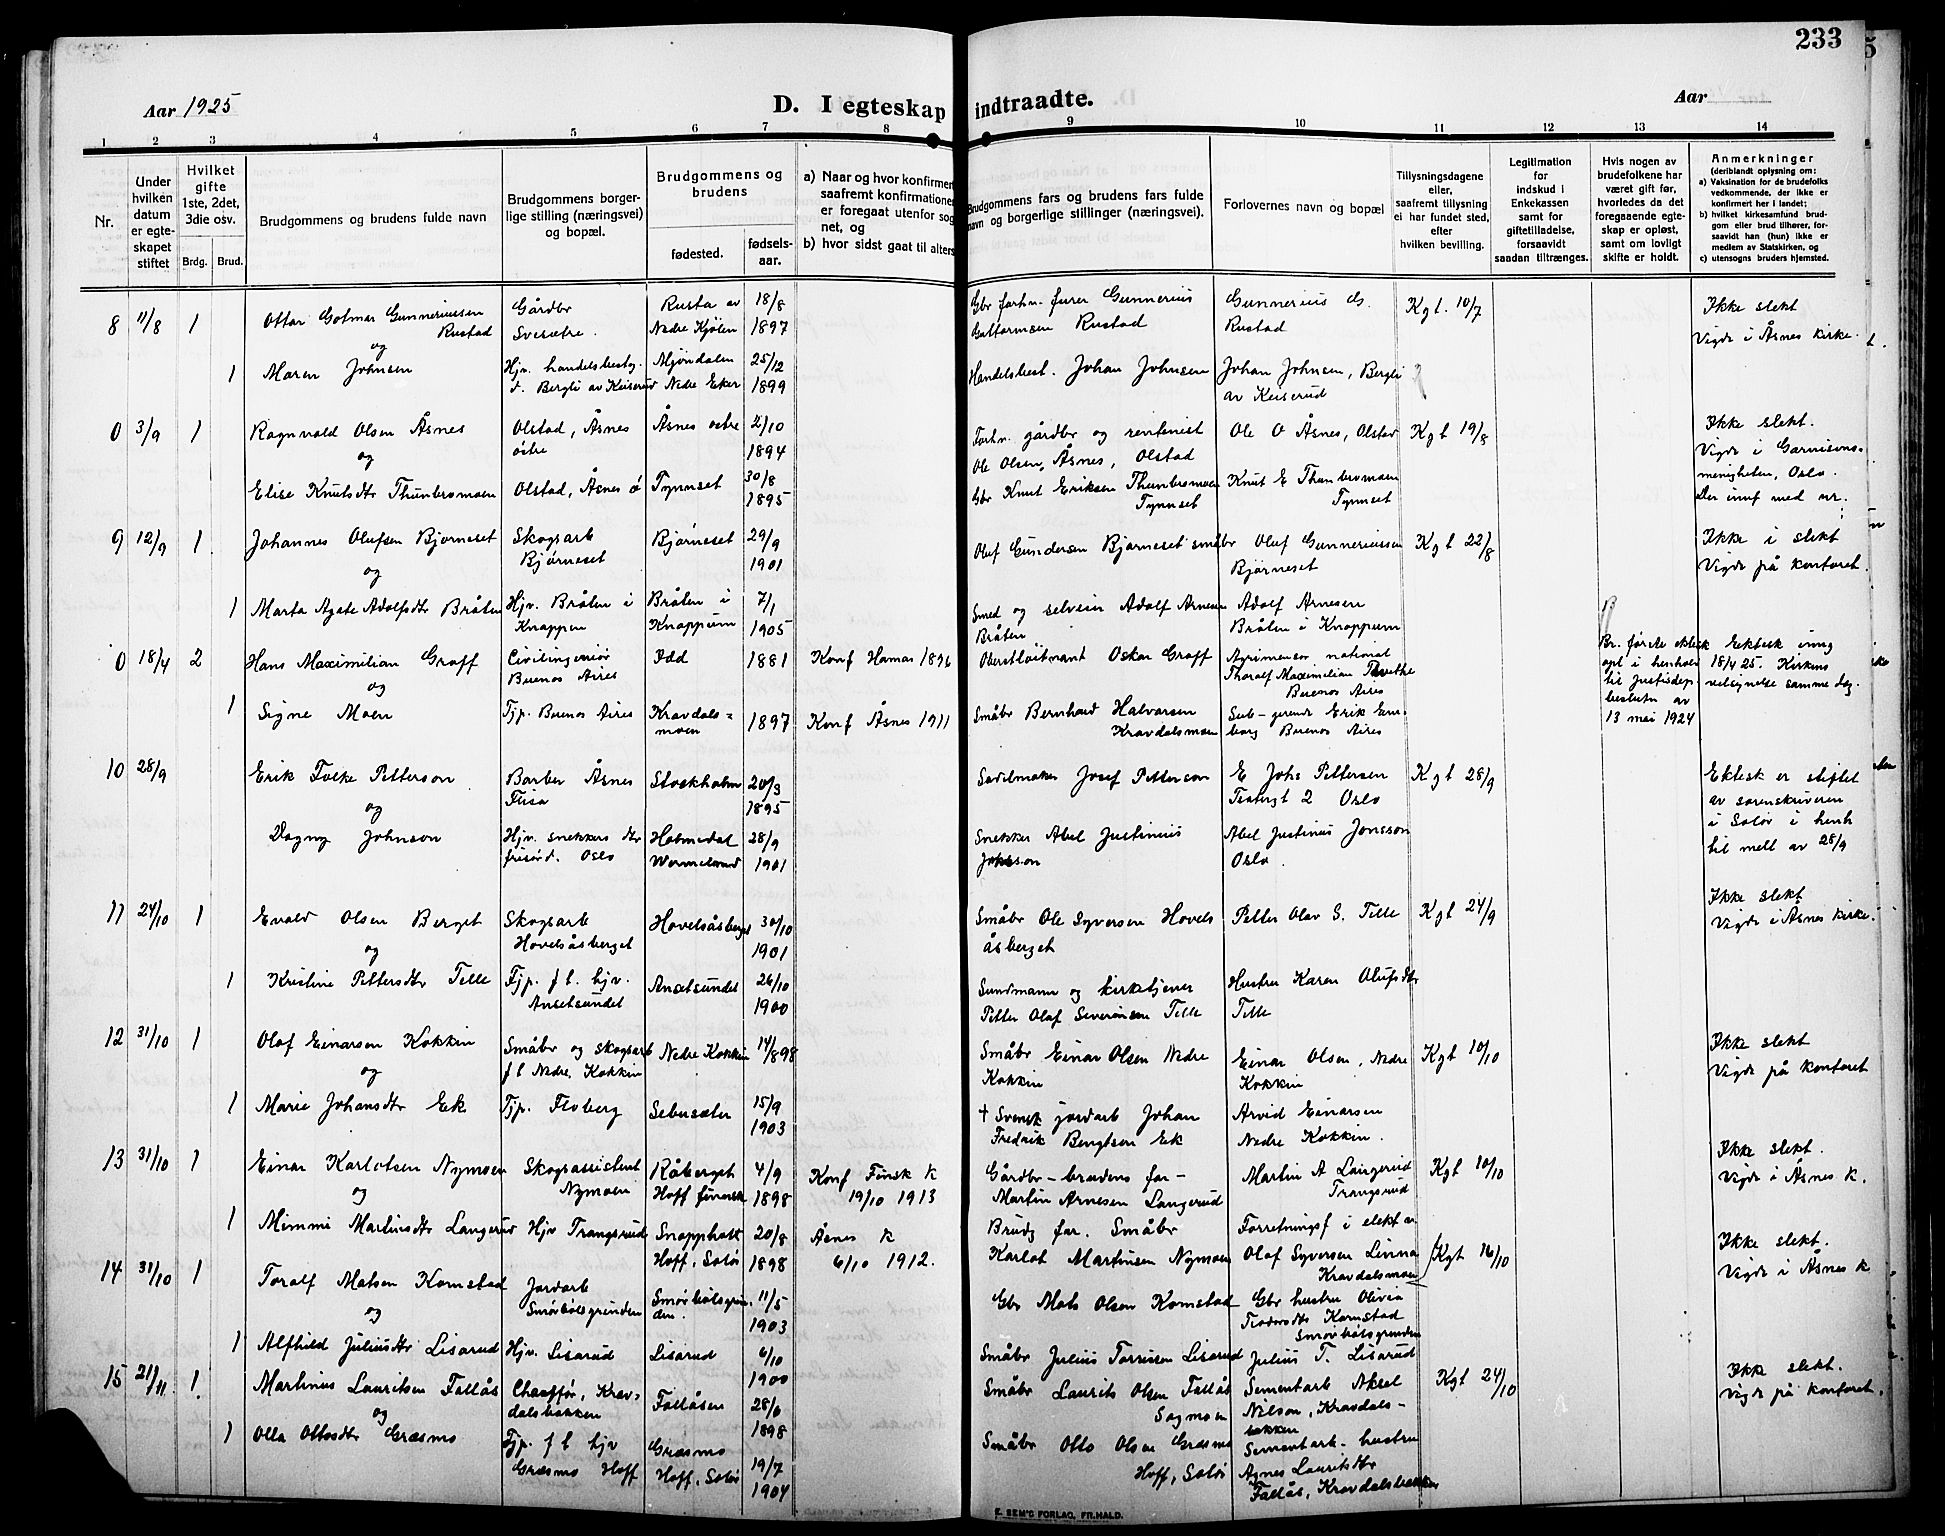 233
Aar 1925
D. I egteskap indtraadte.
Aar
1 2 3 4 5 6 7 8 9 10 11 12 13 14
Nr.
Under hvilken datum er egteskapet stiftet
Hvilket gifte 1ste, 2det, 3die osv.
Brdg. Brud.
Brudgommens og brudens fulde navn
Brudgommens borgerlige stilling (næringsvei) og bopæl.
Brudgommens og brudens
fødested.
fødselsaar.
a) Naar og hvor konfirmer
saafremt konfirmationen
er foregaat utenfor sog
net, og
b) hvor sidst gaat til alters
Brudgommens fars og brudens fars fulde
navn og borgerlige stillinger (næringsvei).
Forlovernes navn og bopæl
Tillysningsdagene eller, saafremt tillysning ei har fundet sted, efter hvilken bevilling.
Legitimation for indskud i Enkekassen samt for giftetilladelse, forsaavidt saadan tiltrænges.
Hvis nogen av brudefolkene har været gift før, hvorledes da det foregaaende egteskap er opløst, samt om lovligt skifte er holdt.
Anmerkninger
(deriblandt oplysning om:
a) Vaksination for de brudefolks vedkommende, der ikke er konfirmert her i landet;
b) hvilket kirkesamfund brudgom eller brud tilhører, forsaavidt han (hun) ikke er medlem av Statskirken, og
c) utensogns bruders hjemsted.
8 11/8 1 Ottar Gotmar Gunneriussen Rustad
Gårdbr Svesætre.
Rusta av Nedre Kjølen 18/8 1897
Gbr forhn. furer Gunnerius Rustad
Gunnerius G. Rustad
Kgt. 10/7
Ikke slekt
Vigde i Åsnes kirke.
og
1 Maren Johnsen
Hjv. handelsbesty. d. Bergli av Keiserud
Mjøndalen Nedre Eker 25/12 1899
Handelsbest. Johan Johnsen
Johan Johnsen, Bergli av Keiserud
0 3/9 1 Ragnvald Olsen Åsnes
Olstad, Åsnes østre
Åsnes østre /10 1894
Forhn. gårdbr og rentenist
Ole Olsen, Åsnes, Olstad
Ole O Åsnes, Olstad
Kgt 19/8
Ikke slekt.
Vigde i Garnisons-
menigheten, Oslo.
og
Elise Knutsdtr Thunbromoen
Olstad, Åsnes ø
Tynnset 30/8 1895
Gbr Knut Eriksen Thunbromoen Tynnset
Knut E Thunbromoen Tynnset
9 12/9 1 Johannes Olufsen Bjørneset
Skogsarb Bjørneset
Bjørneset 29/9 1901
Oluf Gundersen Bjørneset småbr
Oluf Gunneriussen Bjørneset
Kgt 22/8
Ikke i slekt
Vigde på kontoret.
og
1 Marta Agate Adolfsdtr Bråten
Hjv. Bråten i Knappen
Bråten i Knappum 7/1 1905
Smed og selveier Adolf Arnesen Bråten
Adolf Arnesen Bråten i Knappum
0 18/4 2 Hans Maximilian Graff
Civilingeniør Buenos Aires
Idd 1881
Konf Hamar 1896
Oberstløitnant Oskar Graff
Agrimensor national
Thoralf Maximilian
Buenos Aires
Br. første ektesk
opl i henhold
til Justisdep.
beslutn av
13 mai 1924
Ektesk inng
18/4 25. Kirkens
velsignelse samme dag.
og
1 Signe Moen
Tjp. Buenos Aires
Kravdalsmoen 1897
Konf Åsnes 1911
Småbr Bernhard Halvorsen Kravdalsmoen
Erik
Buenos Aires
10 28/9 Erik Folke Petterson
Barber Åsnes Flisa
Stockholm 20/3 1895
Sadelmaker Josef Petterson
E Johs Pettersen
Teatergt 2 Oslo
Kgt 28/9
Ektesk er stiftet
av sorenskriveren
i Solør i henh
til melt av 28/9
og
Dagny Johnson
Hjv. snekkers dtr frisørd. Oslo
Holmedal Wermeland 28/9 1901
Snekker Abel Justinius Johsson
Abel Justinius Jonsson
Oslo.
11 24/10 1 Evald Olsen Berget
Skogsarb Hovelsåsberget
Hovelsåsberget 30/10 1901
Småbr Ole Syversen Hovels åsberget
Petter Olav S. Telle
Kgt 24/9
Ikke slekt
Vigde i Åsnes kirke.
og
1 Kristine Pettersdtr Telle
Tjp. f l. hjv. Arnetsundet
Arnetsundet 26/10 1900
Sundmann og kirketjener
Petter Olaf Severinsen Telle
Hustru Karen Olufsdtr Telle
12 31/10 1 Olaf Einarsen Kokkin
Småbr og skogsarb f l Nedre Kokkin
Nedre Kokkin 14/8 98
Småbr Einar Olsen Nedre Kokkin
Einar Olsen, Nedre Kokkin
Kgt 10/10
Ikke slekt
Vigde på kontoret
og
1 Marie Johansdtr Ek
Tjp. Floberg
Sebusæter 15/9 1903
+ Svensk jordarb Johan
Fredrik Bengtsen Ek
Arvid Einarsen
Nedre Kokkin.
13 31/10 1 Einar Karlotsen Nymoen
Skogsassistent Nymoen
Råberget Hoff finnsk 4/9 1898
Konf Finsk k
19/10 1913
Gårdbr - brudens far -
Martin Arnesen Langerud
Martin A Langerud Trangsrud
Kgt 10/10
Ikke slekt.
Vigde i Åsnes k.
og
1 Mimmi Martinsdtr Langerud
Hjv Trangsrud
Snapphatt Hoff, Solør 20/8 1898
Åsnes k
6/10 1912.
Brudg far. Småbr
Karlot Martinsen Nymoen
Forretningsf i elekt v
Olaf Syversen Linna
Kravdalsmoen
14 31/10 1 Toralf Matsen Komstad
Jordarb Smørbølsgrinden
Smørbølsgrinden. 11/5 1903
Gbr Mats Olsen Komstad
Gbr hustru Olivia
Teodorsdtr Komstad
Smørbølsgrinden
Kgt 16/10
Ikke slekt.
Vigde i Åsnes k
og
1 Alfhild Juliusdtr Lisarud
Hjv. Lisarud
Lisarud 6/10 1900
Småbr Julius Torrissen Lisarud
Julius T. Lisarud
15 21/11. 1. Martinius Lauritsen Fallås
Chauffør, Kravdalsbakken
Fallåsen 28/6 1898
Småbr Laurits Olsen Fallås Sagmoen
Sementarb Aksel
Nilson, Kravdals-
bakken
Kgt 24/10
Ikke slekt.
Vigde på kontoret.
og
1 Olla Ottosdtr Græsmo
Tjp. f l hjv Græsmo Hoff
Græsmo Hoff, Solør 19/7 1904
Småbr Otto Olsen Græsmo Hoff, Solør
Sementarb. hustru
Agnes Lauritsdtr
Fallås, Kravdalsbakken
E. SEM'S FORLAG, FR.HALD.